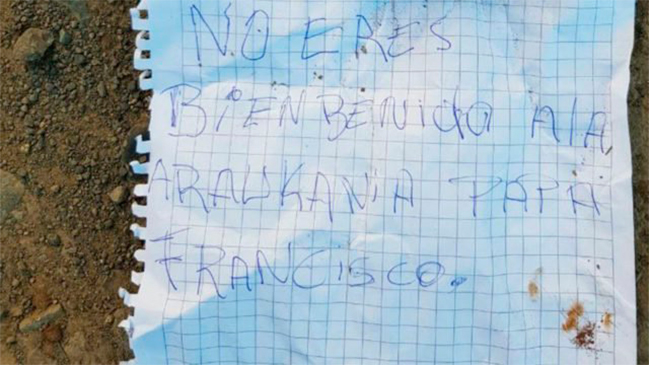 NO ERES
BIENBENIDO A lA
ARAUKANIA PAPA
FRANCISCO.